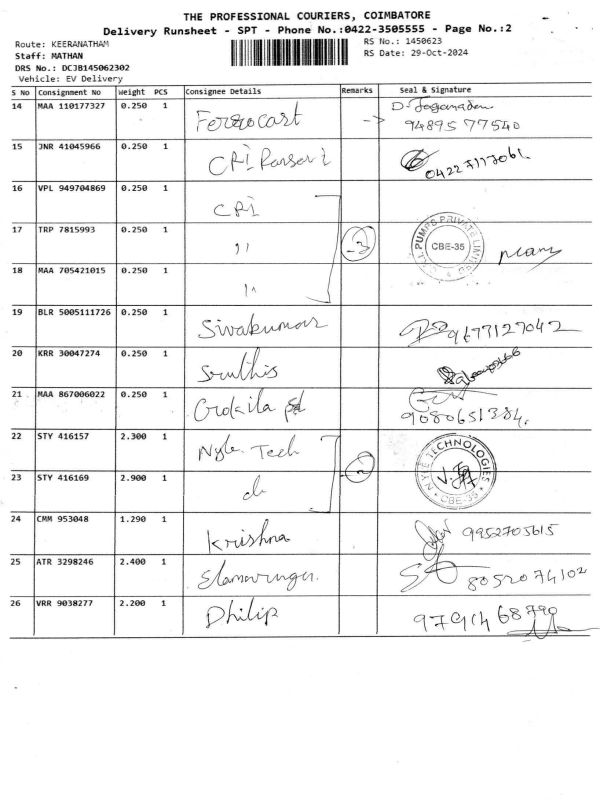 THE PROFESSIONAL COURIERS, COIMBATORE
Delivery Runsheet - SPT - Phone No.:0422-3505555 - Page No.:2
Route: KEERANATHAM RS No.: 1450623
Staff: MATHAN RS Date: 29-Oct-2024
DRS No.: DCJB145062302
Vehicle: EV Delivery
S No Consignment No Weight PCS Consignee Details Remarks Seal & Signature
14 MAA 110177327 0.250 1 Ferrocart -> D. Jaganaden
94895 77540
15 JNR 41045966 0.250 1 CPI 04227117061.
16 VPL 949704869 0.250 1 CPI
17 TRP 7815993 0.250 1 " 3 PUMPS PRIVATE LIMITED CBE-35
18 MAA 705421015 0.250 1 "
19 BLR 5005111726 0.250 1 Sivakumar 9677127042
20 KRR 30047274 0.250 1
21 MAA 867006022 0.250 1 Gokila
9080651384.
22 STY 416157 2.300 1 Nyle Tech 2 NYLE TECHNOLOGIES CBE-35
23 STY 416169 2.900 1
24 CMM 953048 1.290 1 Krishna 9952705615
25 ATR 3298246 2.400 1 8052074102
26 VRR 9038277 2.200 1 Dhilip 9791468790